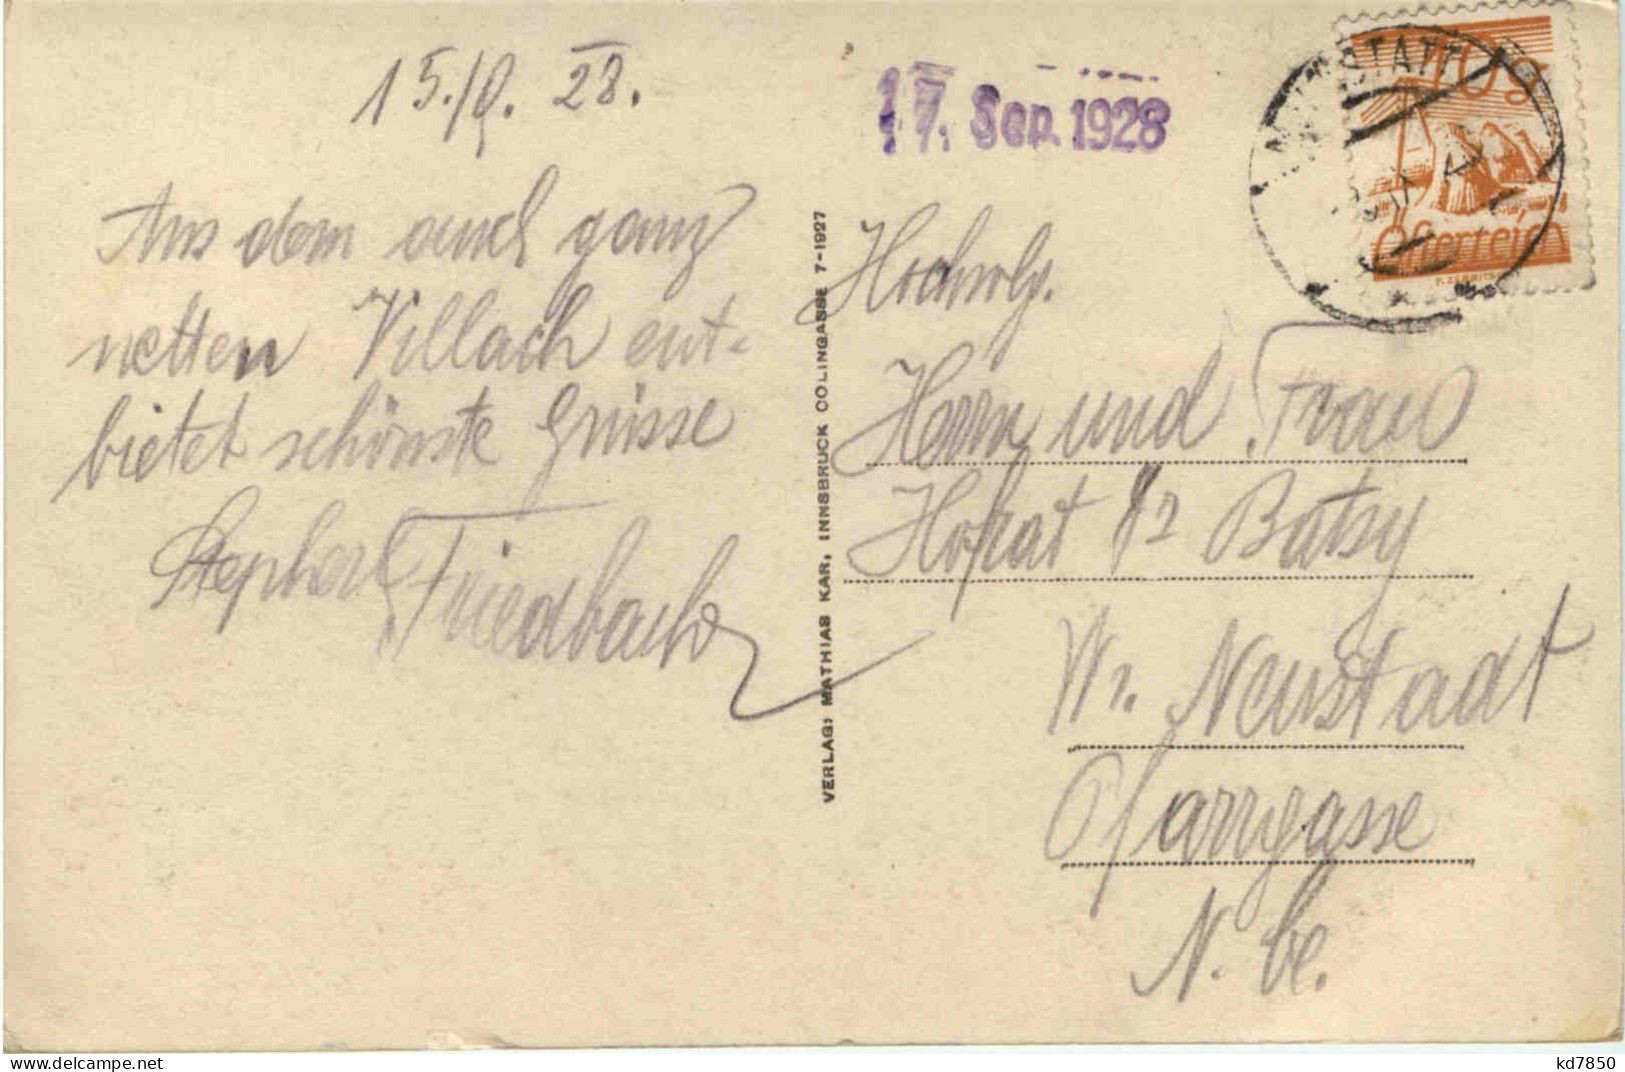 15./9. 28.
Aus dem auch ganz
netten Villach ent-
bietet schönste Grüsse
Stephan Friedbacher
VERLAG: MATHIAS KAR, INNSBRUCK COLINGASSE 7-1927
17. Sep. 1928
10 g
Österreich
Hochwlg.
Herrn und Frau
Hofrat Dr Batsy
Wr. Neustadt
Pfarrgasse
N. Oe.
kd7850